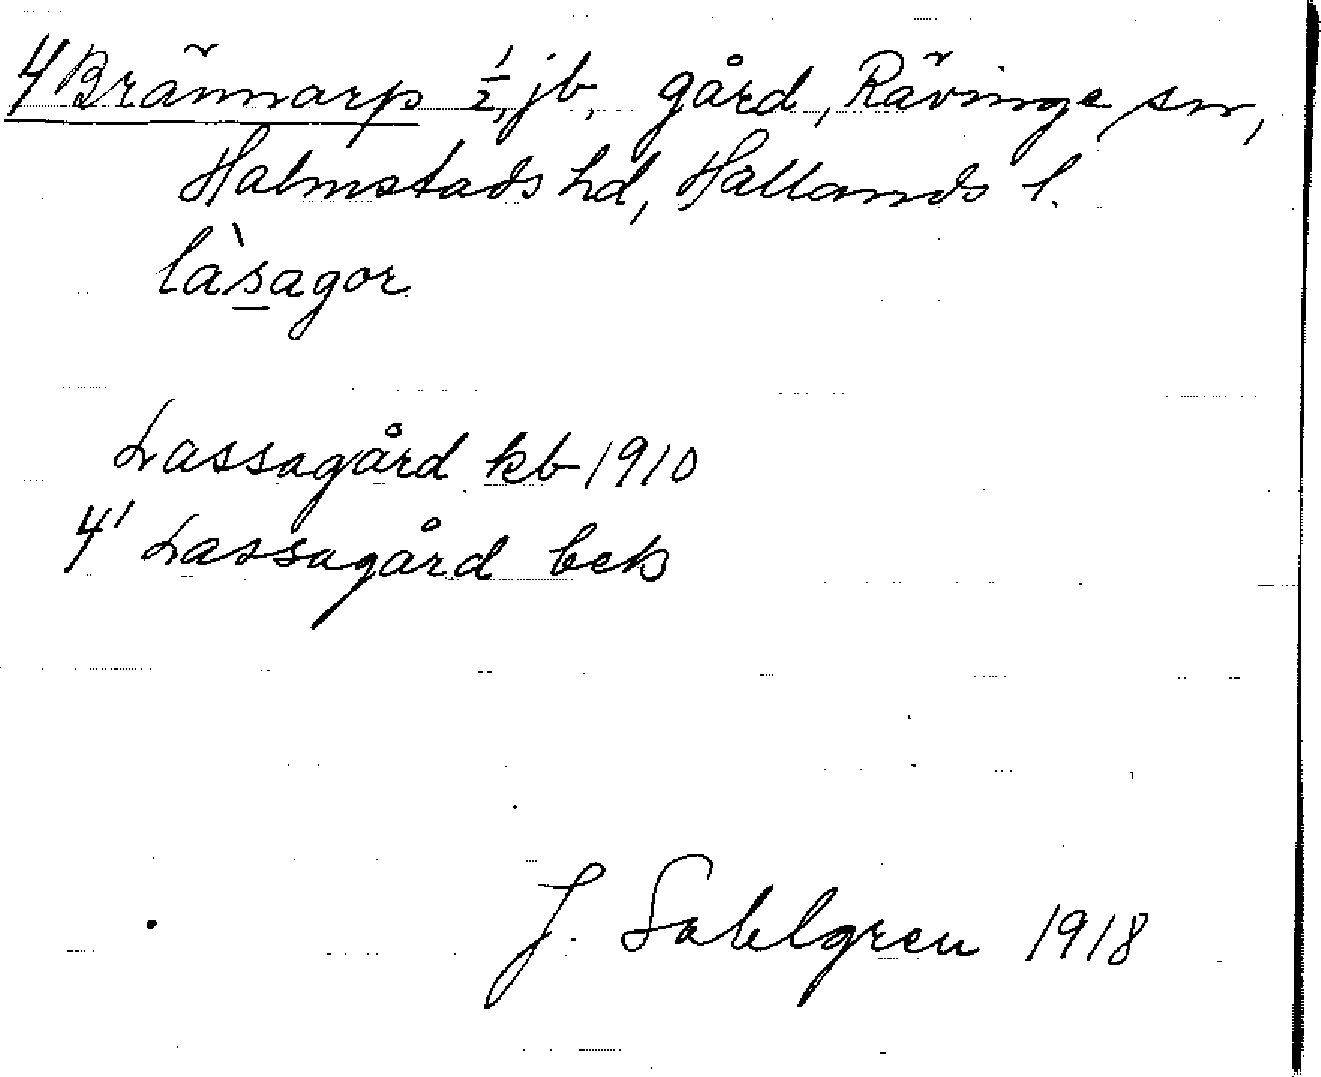 4 Brännarp ½, jb, gård, Rävinge sn,
Halmstads hd, Hallands l.
là̱sagor
Lassagård kb 1910
4' Lassagård bek
J. Sahlgren 1918